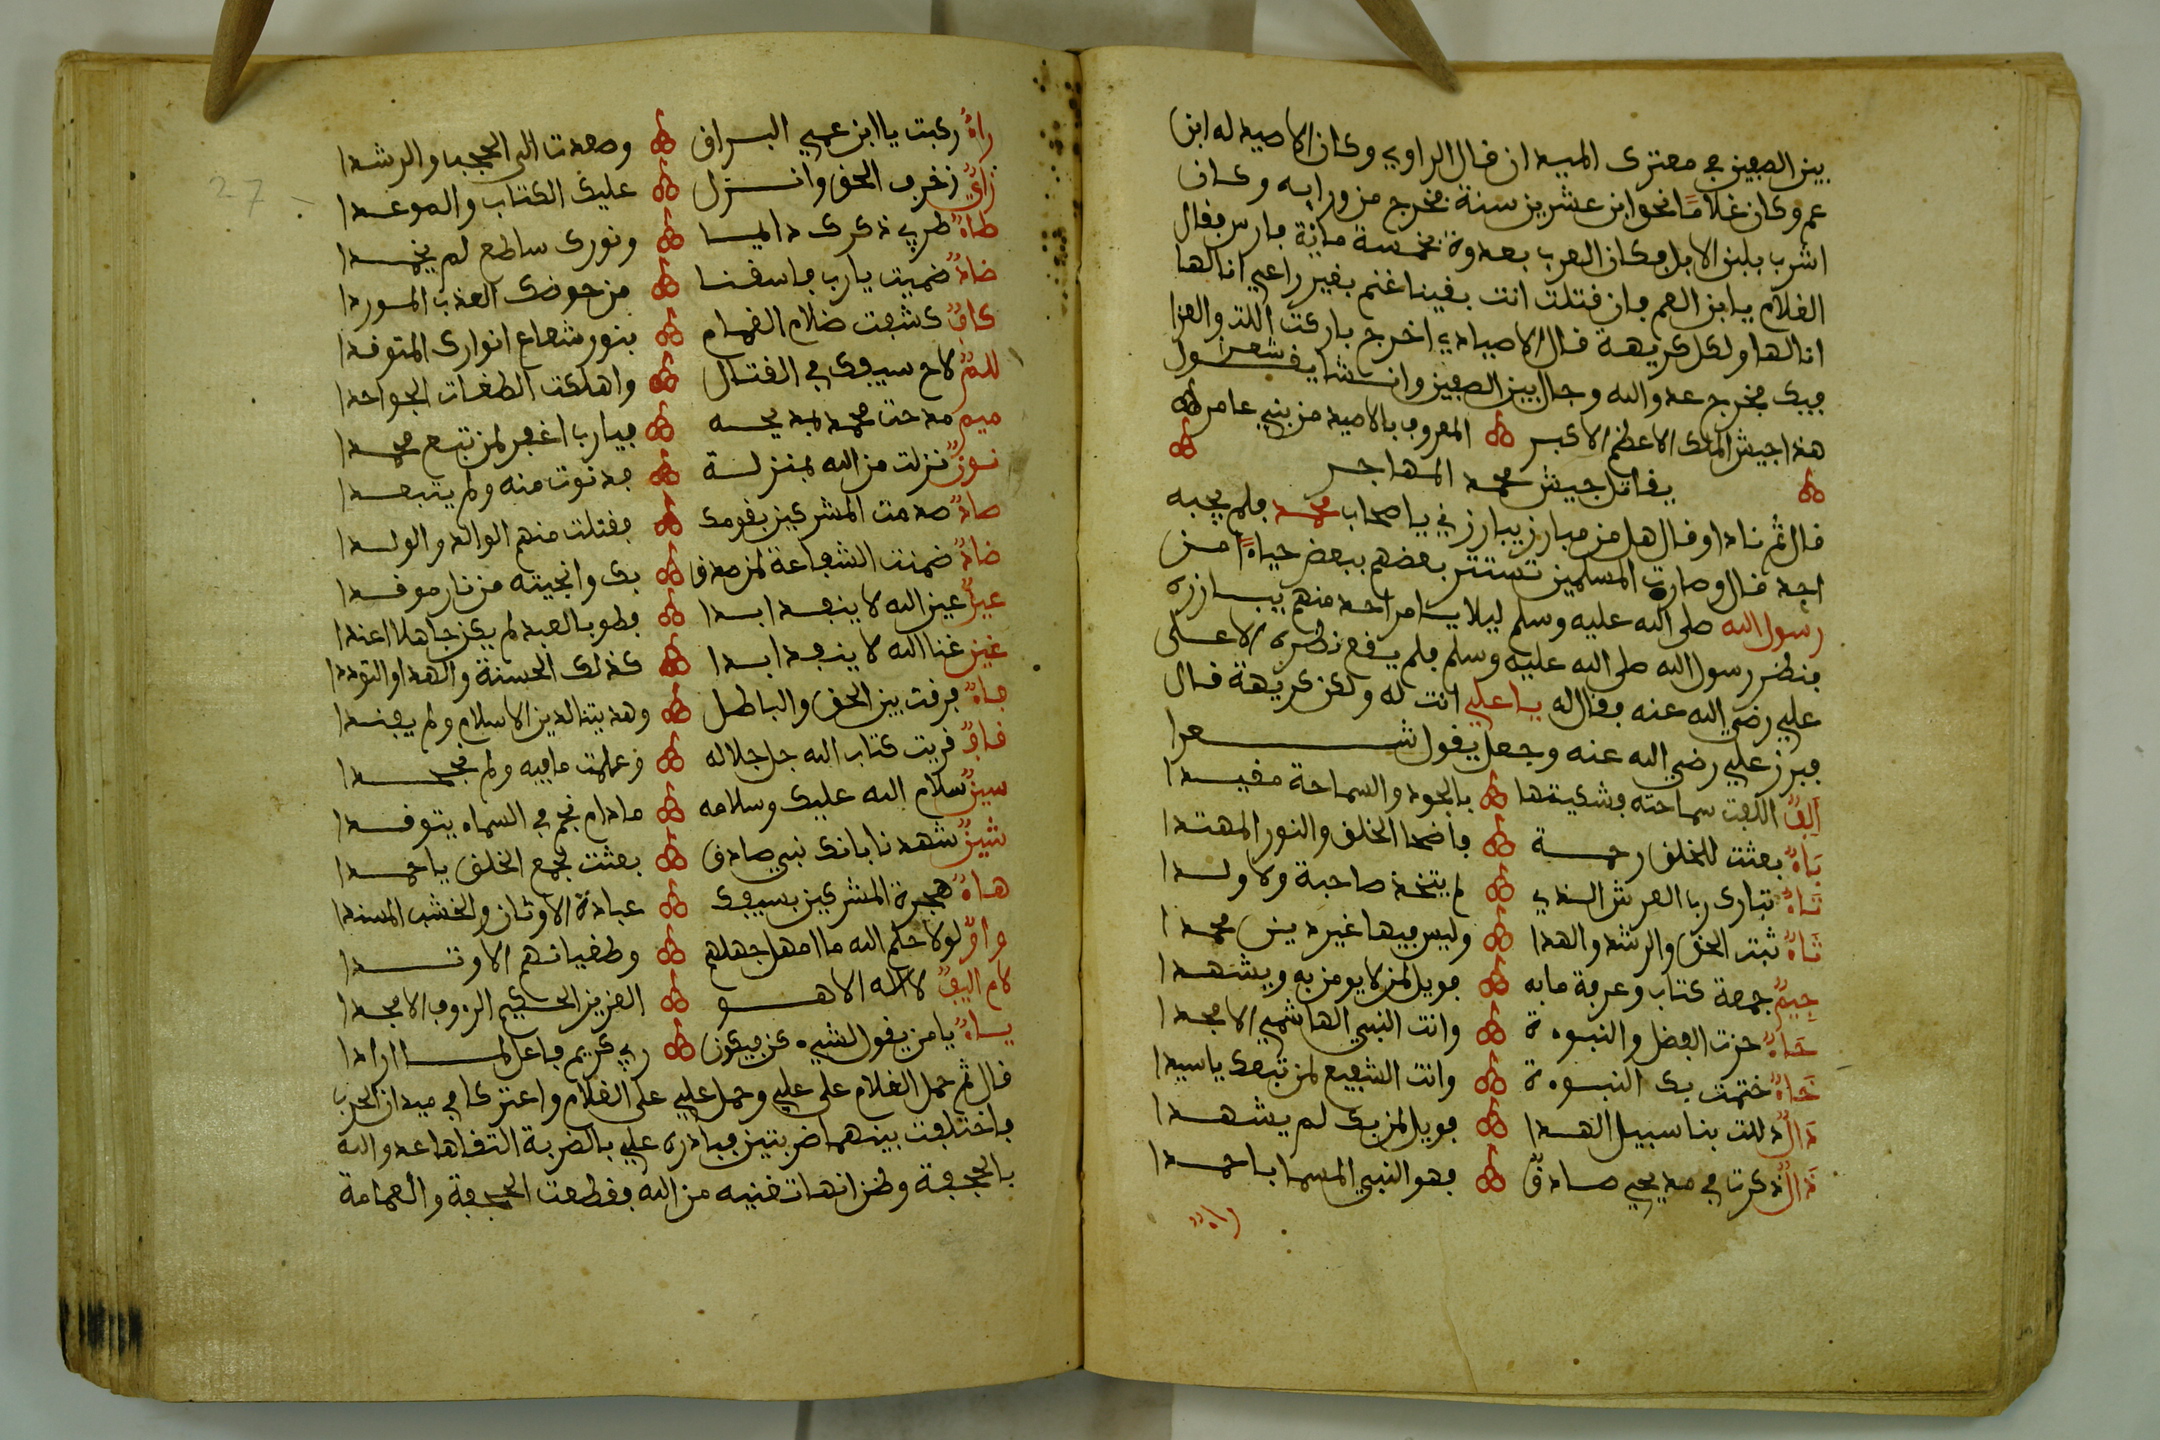 بين الصفين في معترك الميدان قال الراوي وكان الاصيد له ابن
عم وكان غلامًا نحوا بن عشرين سنة فخرج من ورايه وكان
اشرب بلبن الابل فكان العرب بعدوة بخمسة ماية فارس فقال
الغلام يا ابن العم فان قتلت انت بقينا غنم بغير راعي انا لها
انا لها ولكل كريهة قال الاصيادي اخرج باركت اللت والعزا
فيك فخرج عدو الله وجال بين الصفين وانشا يقول شعرا
هذا جيش الملك الاعظم الاكبر المعروف بالاصيد من بني عامر
يقاتل جيش محمد المهاجر
قال ثم نادا وقال هل من مبارز يبارزني يا صحاب محمد فلم يجبه
احد قال وصارت المسلمين تستتر بعضهم ببعض حياءً من
رسول الله صلى الله عليه وسلم ليلا يامر احد منهم يبارزه
فنظر رسول الله صلى الله عليه وسلم فلم يقع نظره الا على
علي رضي الله عنه فقال له يا علي انت له ولكن كريهة قال
فبرز علي رضي الله عنه وجعل يقول شعرا
الف الفت سماحته وشكيتها بالجود والسماحة مفيدا
باء بعثت للخلق رحمة فاضحا الخلق والنور المهتدا
تاء تبارك ربا العرش الذي لم يتخذ صاحبة ولا ولدا
ثاء ثبت الحق والرشد والهدا وليس فيها غير دين محمدا
جيم جمعة كتاب وعرفة مابه فويل لمن لا يومن به ويشهدا
حاء حزت الفضل والنبوءة وانت النبي الهاشمي الامجدا
خاء ختمت بك النبوءة وانت الشفيع لمن تبعك يا سيدا
دال دللت بنا سبيل الهدا فويل لمن بك لم يشهدا
ذال ذكرت في مديحي صادق فهو النبي المسما باحمدا
راء
راء ركبت يا ابن عمي البراق وصعدت الى الحجب والرشدا
زاي زخرف الحق وانزل عليك الكتاب والموعدا
طاء طربي ذكرك دايما ونورك ساطع لم يخمدا
ظاء ضميت يا رب فاسقنا من حوضك العذب الموردا
كاف كشفت ضلام الغمام بنور شعاع انوارك المتوقدا
لام لاح سيفك في القتال واهلكت الطغات الجواحدا
ميم مدحت محمد بمديحه فيارب اغفر لمن تبع محمدا
نون نزلت من الله بمنزلة فدنوت منه ولم يتبعدا
صاد صدمت المشركين بقومك فقتلت منهم الوالد والولدا
ضاد ضمنت الشفاعة لمن صدق بك وانجيته من نار موقدا
عين عين الله لا ينفد ابدا فطوبا لعبد لم يكن جاهلا اعندا
غين غنا الله لا ينفد ابدا كذلك الحسنة والهدا والتوددا
فاء فرقت بين الحق والباطل وهديتنا لدين الاسلام ولم يفندا
قاف قريت كتاب الله جل جلاله وعلمت مافيه ولم تجحدا
سين سلام الله عليك وسلامه مادام نجم في السماء يتوقدا
شين شهدنا بانك نبي صادق بعثت لجمع الخلق ياحمدا
هاء هجرة المشركين بسيفك عبادة الاوثان والخشب المسندا
واو لولا حلم الله ما امهل جهلهم وطغيانهم الاوتدا
لام اليف لا اله الا هو العزيز الحكيم الرءوف الامجدا
ياء يا من يقول لشيء كن فيكون ربي كريم فاعل لما ارادا
قال ثم حمل الغلام على علي وحمل علي على الغلام واعتركا في ميدان الحرب
فاختلفت بينهما ضربتين فبادره علي بالضربة التقاها عدو الله
بالحجفة وظن انها تغنيه من الله فقطعت الحجفة والعمامة
27